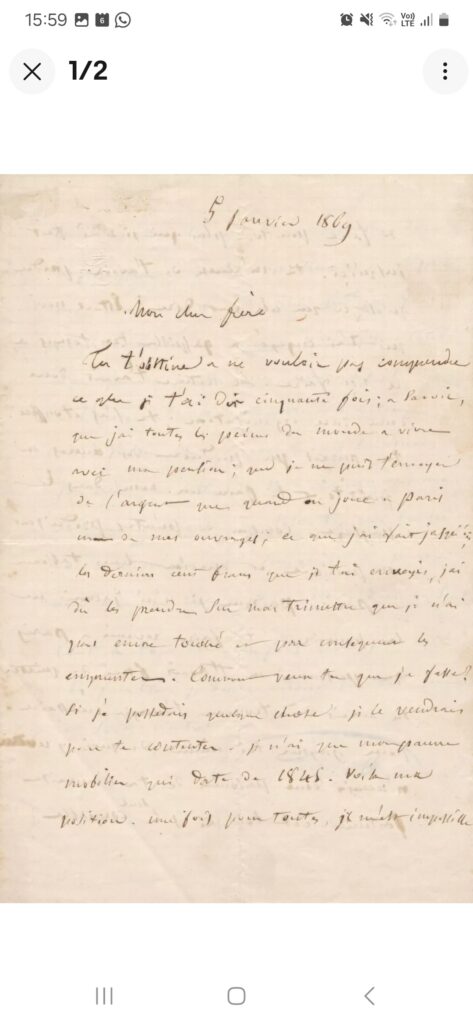 15:59
Vo)
LTE
1/2
5 janvier 1869
Mon cher frère
Tu t'obstine a ne vouloir pas comprendre
ce que je t'ai dit cinquante fois; a savoir,
que j'ai toutes les peines du monde a vivre
avec ma pention; que je ne puis t'envoyer
de l'argent que quand on joue a Paris
un de mes ouvrages, ce que j'ai fait
les derniers cent francs que je t'ai envoyés, j'ai
dû les prendre sur mon trimestre que je n'ai
pas encore touché et par consequent les
emprunter. Comment veux tu que je fasse?
Si je possedais quelque chose je le vendrais
pour te contenter. je n'ai que mon pauvre
mobilier qui date de 1845. Voila ma
position. une fois pour toutes, il m'est impossible